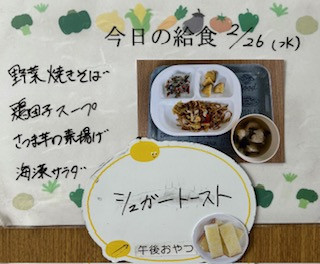 今日の給食 2/26 (水)
野菜焼きそば
鶏団子スープ
さつま芋の素揚げ
海藻サラダ
シュガートースト
午後おやつ